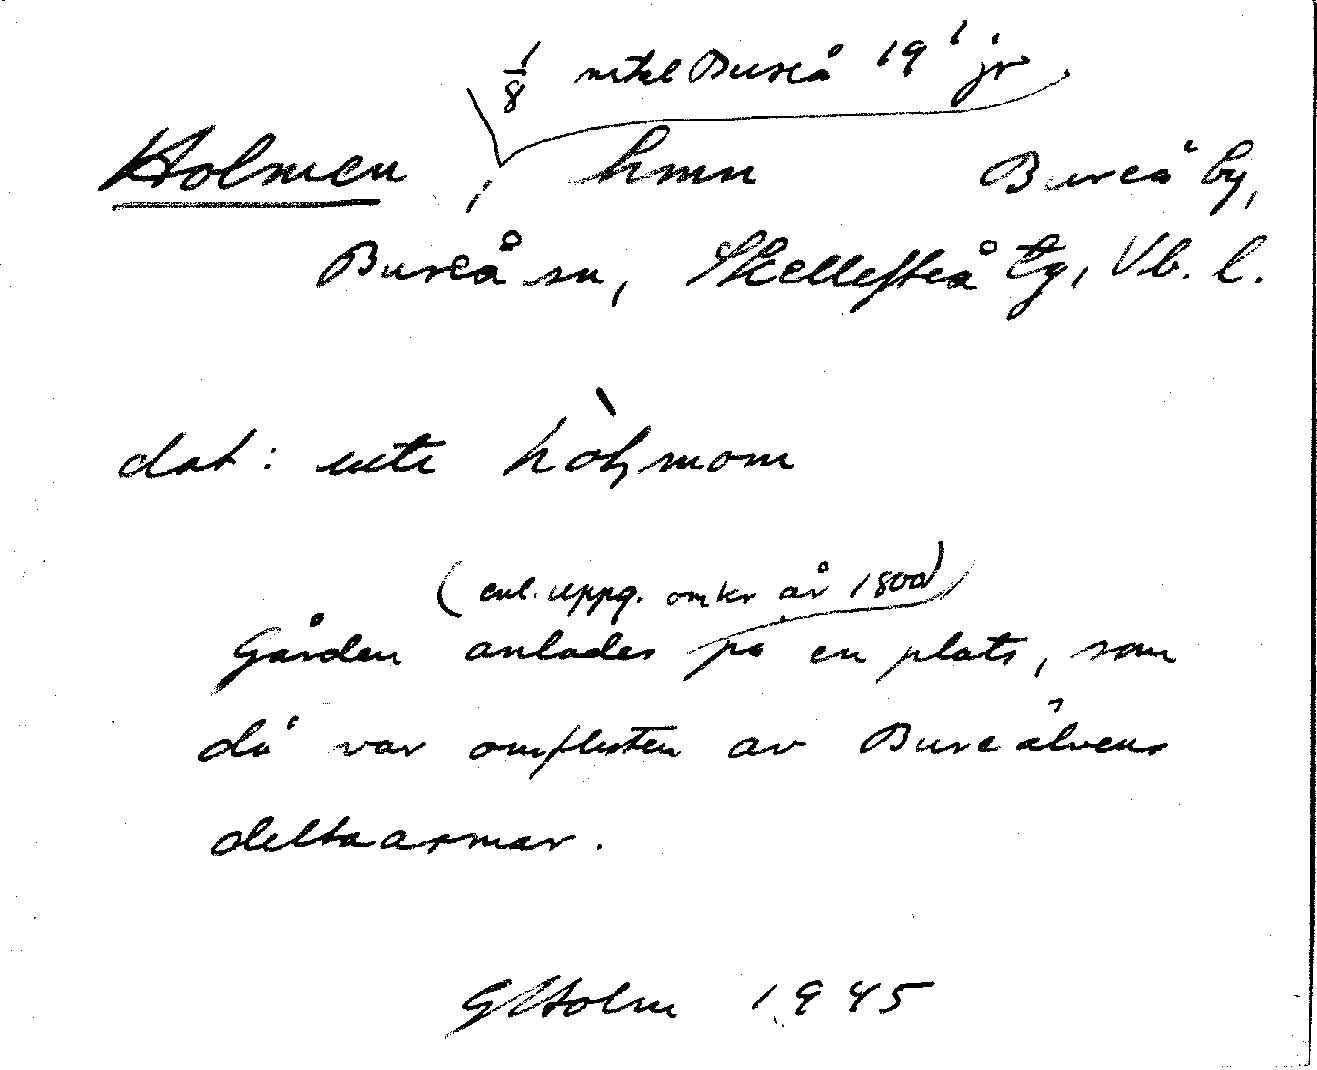 1/8 mtl Bureå 19¹ jr
Holmen, hmn Bureå by,
Bureå sn, Skellefteå tg, Vb. l.
dat: ute hòḷmom
(enl. uppg. omkr år 1800)
Gården anlades på en plats, som
då var omfluten av Bureälvens
deltaarmar.
G Holm 1945